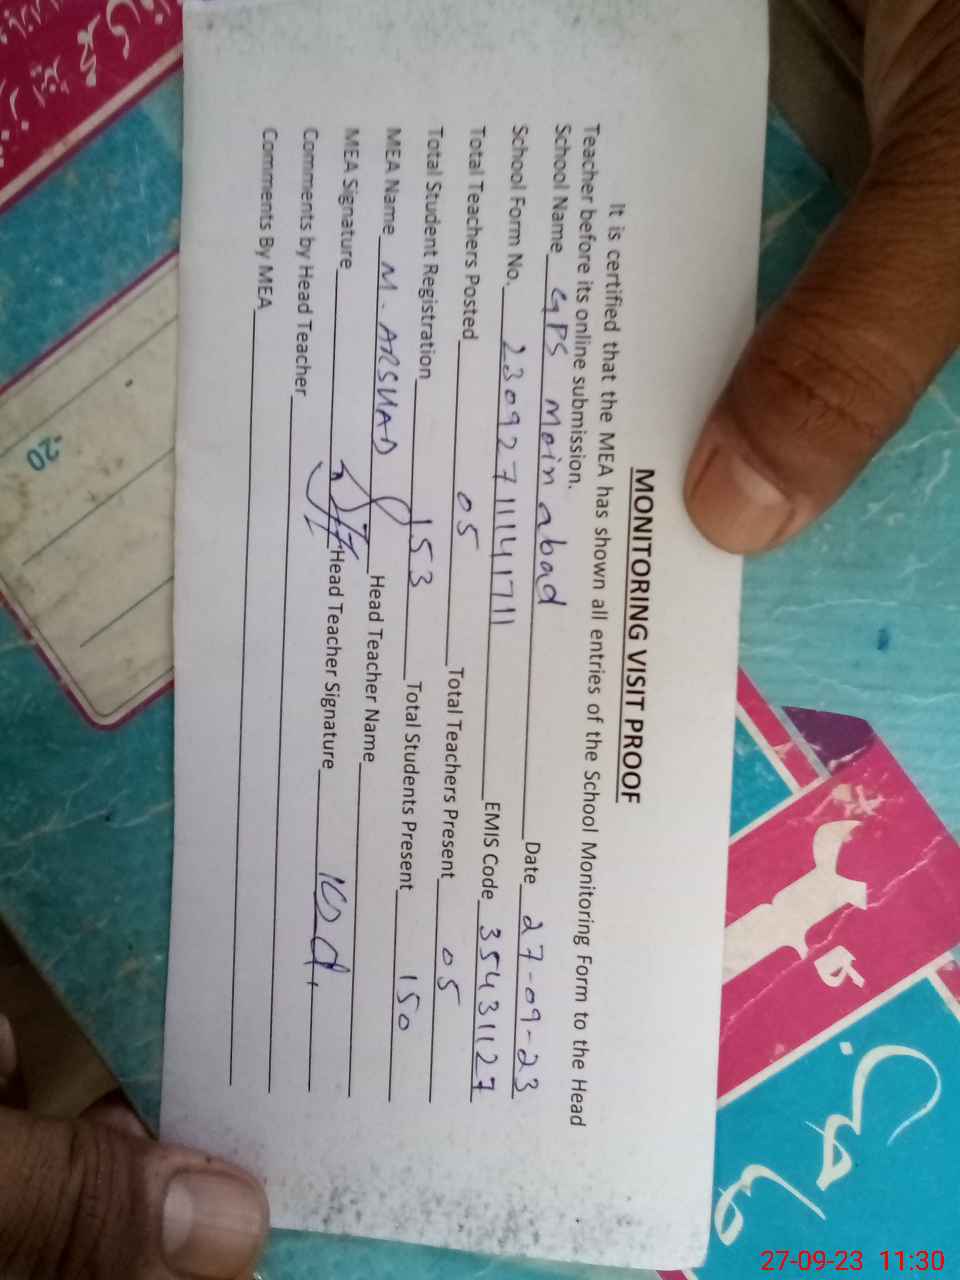 MONITORING VISIT PROOF
It is certified that the MEA has shown all entries of the School Monitoring Form to the Head
Teacher before its online submission.
School Name GPS Moinabad Date 27-09-23
School Form No. 23092711141711 EMIS Code 35431127
Total Teachers Posted 05 Total Teachers Present 05
Total Student Registration 153 Total Students Present 150
MEA Name M. ARSHAD Head Teacher Name
MEA Signature Head Teacher Signature
Comments by Head Teacher
Comments By MEA
20
27-09-23 11:30